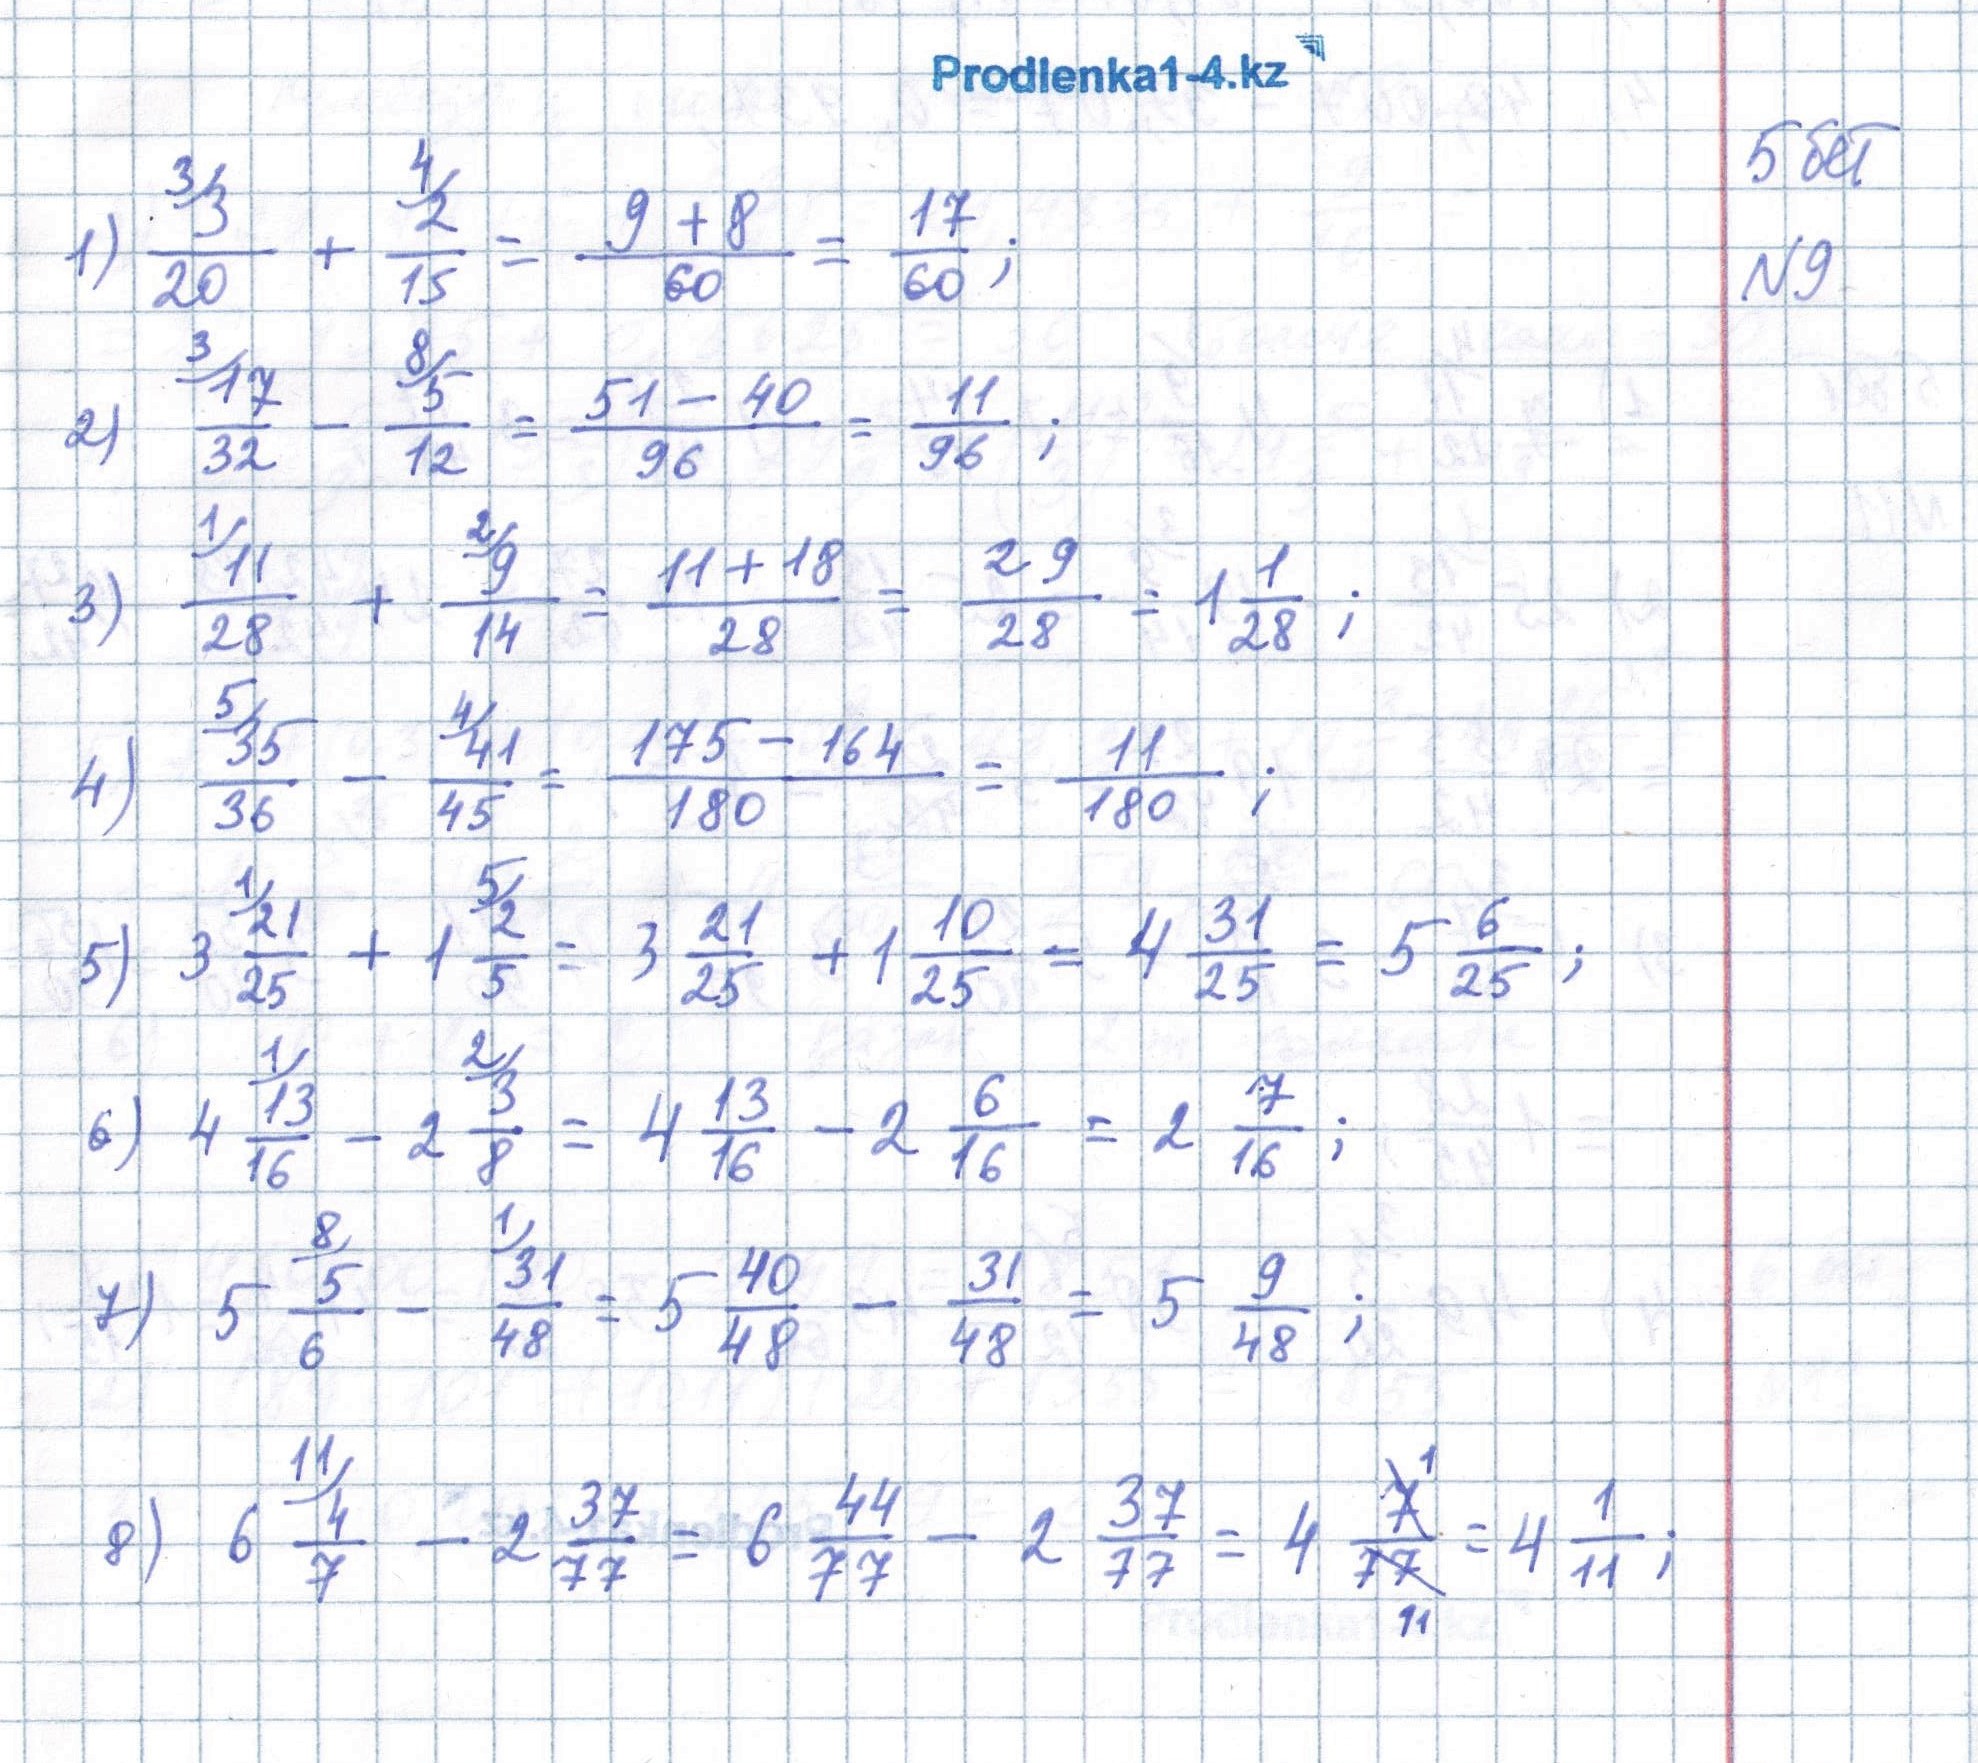 Prodlenka1-4.kz
5 бет
N9
1) 3/3/20 + 4/2/15 = 9+8/60 = 17/60;
2) 3/17/32 - 8/5/12 = 51-40/96 = 11/96;
3) 1/11/28 + 2/9/14 = 11+18/28 = 29/28 = 1 1/28;
4) 5/35/36 - 4/41/45 = 175-164/180 = 11/180;
5) 3 1/21/25 + 1 5/2/5 = 3 21/25 + 1 10/25 = 4 31/25 = 5 6/25;
6) 4 1/13/16 - 2 2/3/8 = 4 13/16 - 2 6/16 = 2 7/16;
7) 5 8/5/6 - 1/31/48 = 5 40/48 - 31/48 = 5 9/48;
8) 6 11/4/7 - 2 37/77 = 6 44/77 - 2 37/77 = 4 7 1/77 11 = 4 1/11;